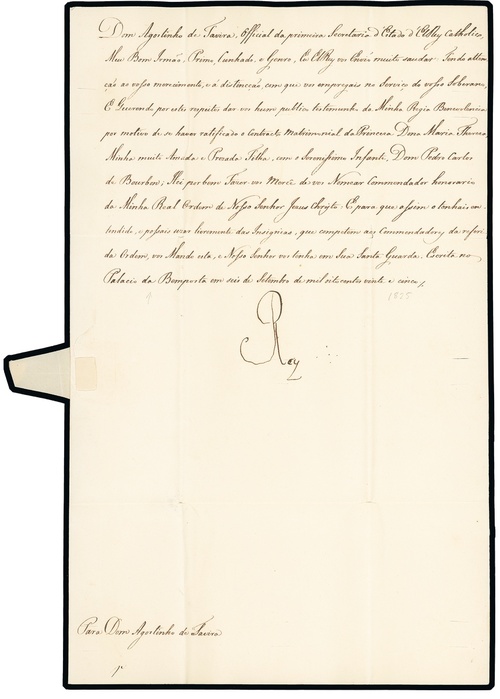 Dom Agostinho de Tavira, Official da primeira Secretaria d'Estado d'ElRey Catholico,
Meu Bom Irmão, Primo, Cunhado, e Genro, Eu ElRey vos Envio muito saudar. Tendo atten-
ção ao vosso merecimento, e á distincção, com que vos empregais no Serviço do vosso Soberano,
E Querendo por estes respeitos dar vos hum publico testemunho da Minha Regia Benevolencia
por motivo de se haver ratificado o Contracto Matrimonial da Princeza Dona Maria Thereza
Minha muito Amada e Prezada Filha, com o Serenissimo Infante, Dom Pedro Carlos
de Bourbon; Hei por bem Fazer vos Mercê de vos Nomear Commendador honorario
da Minha Real Ordem de Nosso Senhor Jesus Christo. E para que assim o tenhais en-
tendido, e possais usar livremente das Insignias, que competem aos Commendadores da referi-
da Ordem, vos Mando esta, e Nosso Senhor vos tenha em Sua Santa Guarda. Escrita no
Palacio da Bemposta em seis de Setembro de mil oitocentos vinte e cinco,
9 1825
Rey
Para Dom Agostinho de Tavira